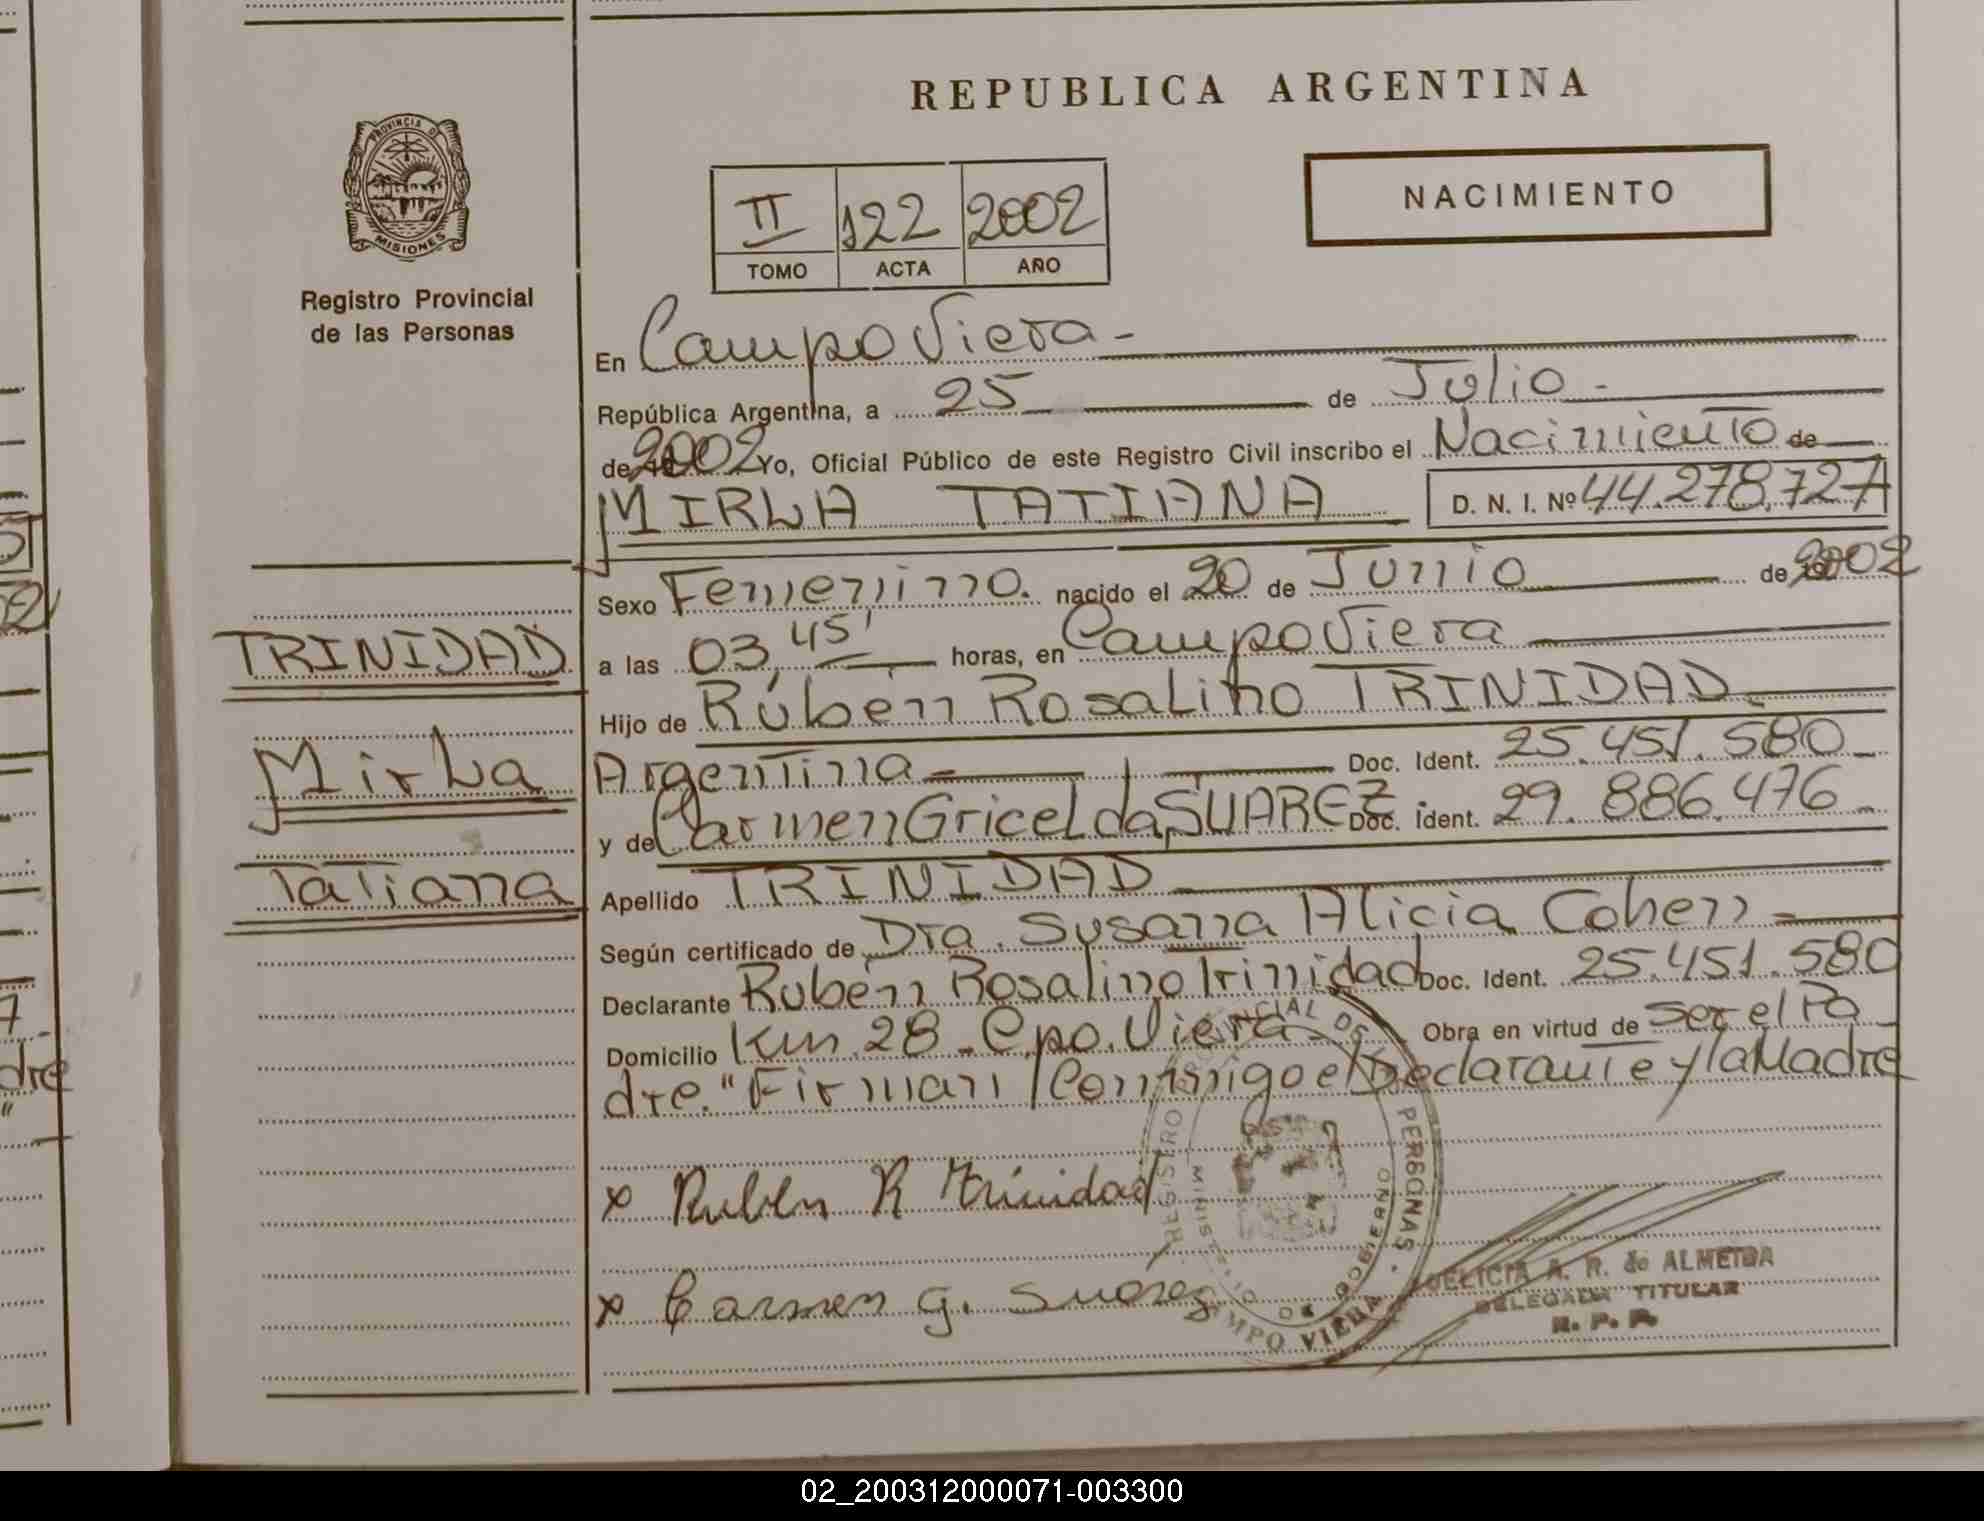 REPUBLICA ARGENTINA
PROVINCIA DE
MISIONES
Registro Provincial
de las Personas
NACIMIENTO
II 122 2002
TOMO ACTA AÑO
En Campo Viera -
República Argentina, a 25 de Julio -
de 2002 Yo, Oficial Público de este Registro Civil inscribo el Nacimiento de
MIRLA TATIANA D. N. I. Nº 44.278,727
Sexo Femenino. nacido el 20 de Junio de 2002
TRINIDAD
a las 03,45' horas, en Campo Viera
Hijo de Rubén Rosalino TRINIDAD
Mirla
Argentina Doc. Ident. 25.451.580
y de Carmen Gricelda SUAREZ Doc. Ident. 29.886.476
Tatiana
Apellido TRINIDAD
Según certificado de Dra. Susana Alicia Cohen
Declarante Rubén Rosalino Trinidad Doc. Ident. 25.451.580
Domicilio Km. 28 - Cpo. Viera - Obra en virtud de ser el Pa
dre." Firman Conmigo el Declarante y la Madre
x Rubén R Trinidad
x Carmen g. Suárez
DELICIA A. R. de ALMEIDA
DELEGADA TITULAR
R. P. P.
02_200312000071-003300